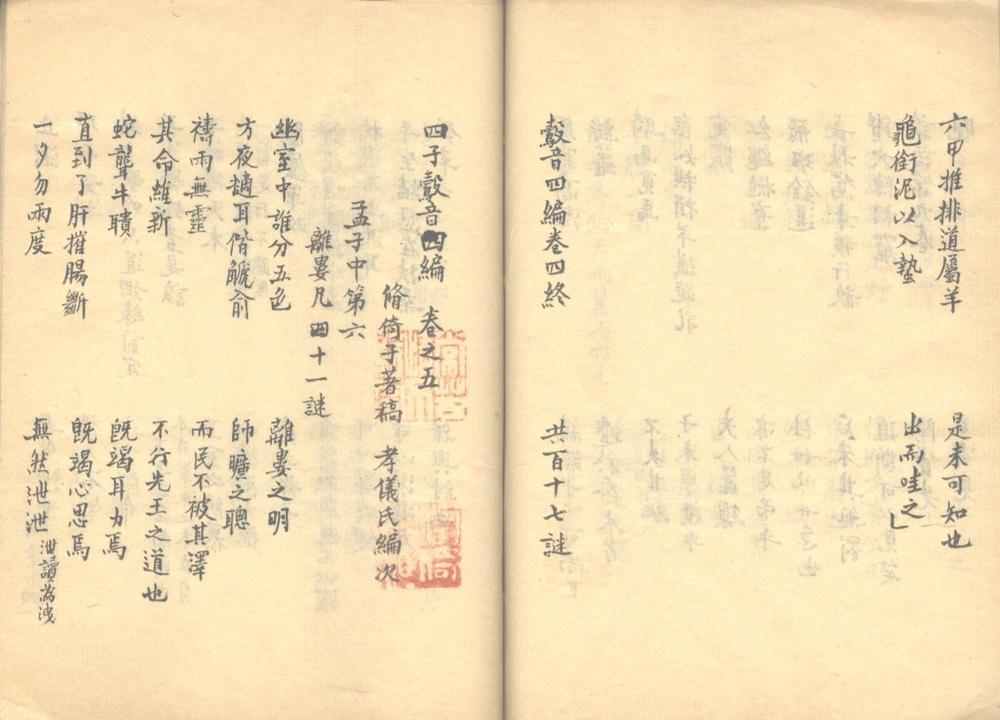 六甲推排道屬羊　是未可知也
龜銜泥以入蟄　出而哇之
鷇音四編卷四終　共百十七謎
四子鷇音四編　卷之五
脩倚子著稿　孝儀氏編次
孟子中第六
離婁凡四十一謎
幽室中誰分五色　離婁之明
方夜擿耳偕觿俞　師曠之聰
禱雨無靈　而民不被其澤
其命維新　不行先王之道也
蛇聾牛聵　旣竭耳力焉
直到了肝摧腸斷　旣竭心思焉
一夕勿兩度　無然泄泄 泄讀為洩